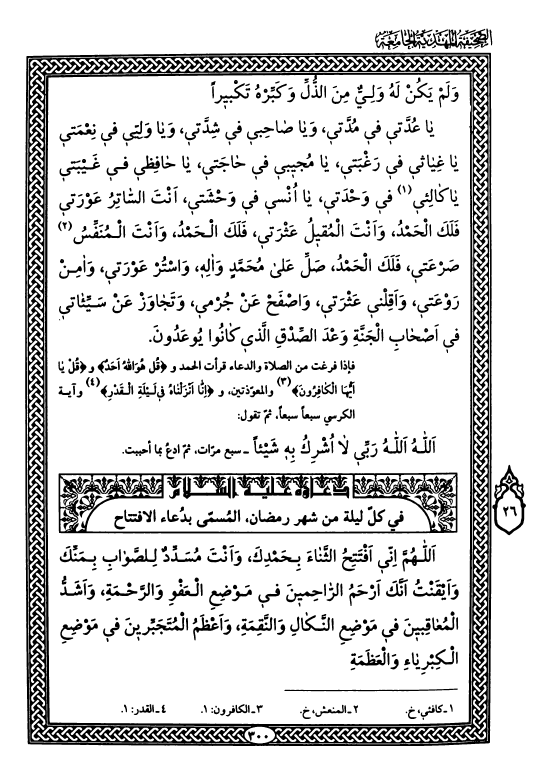 الصّحيفة المهديّة الجامعة
وَلَمْ يَكُنْ لَهُ وَلِيٌّ مِنَ الذُّلِّ وَكَبِّرْهُ تَكْبيراً
يٰا عُدَّتي في مُدَّتي، وَيٰا صٰاحِبي في شِدَّتي، وَيٰا وَلِيّي في نِعْمَتي
يٰا غِيٰاثي في رَغْبَتي، يٰا مُجيبي في حٰاجَتي، يٰا حٰافِظي فـي غَـيْبَتي
يٰاكٰالِئي(١) في وَحْدَتي، يٰا اُنْسي في وَحْشَتي، اَنْتَ السّٰاتِرُ عَوْرَتي
فَلَكَ الْحَمْدُ، وَاَنْتَ الْمُقيلُ عَثْرَتي، فَلَكَ الْـحَمْدُ، وَاَنْتَ الْـمُنَفِّسُ(٢)
صَرْعَتي، فَلَكَ الْحَمْدُ، صَلِّ عَلىٰ مُحَمَّدٍ وَاٰلِهِ، وَاسْتُرْ عَوْرَتي، وَاٰمِـنْ
رَوْعَتي، وَاَقِلْني عَثْرَتي، وَاصْفَحْ عَنْ جُرْمي، وَتَجٰاوَزْ عَنْ سَيِّئٰاتي
في اَصْحٰابِ الْجَنَّةِ وَعْدَ الصِّدْقِ الَّذي كٰانُوا يُوعَدُونَ.
فإذا فرغت من الصلاة والدعاء قرأت الحمد و ﴿قُلْ هُوَاللهُ اَحَدٌ﴾ و ﴿قُلْ يٰا
اَيُّهَا الْكٰافِرُونَ﴾(٣) والمعوّذتين، و ﴿إنّٰا اَنْزَلْنٰاهُ في لَيْلَةِ الْـقَدْرِ﴾(٤) وآيـة
الكرسي سبعاً سبعاً، ثمّ تقول:
اَللّٰهُ اَللّٰهُ رَبّي لٰا اُشْرِكُ بِهِ شَيْئاً ـ سبع مرّات، ثمّ ادعُ بما أحببت.
دعاؤه عليه السلام
في كلّ ليلة من شهر رمضان، المُسمّى بدُعاء الافتتاح
اَللّٰهُمَّ اِنّي اَفْتَتِحُ الثَّنٰاءَ بِـحَمْدِكَ، وَاَنْتَ مُسَدِّدٌ لِـلصَّوٰابِ بِـمَنِّكَ
وَاَيْقَنْتُ اَنَّكَ اَرْحَمُ الرّٰاحِمينَ فـي مَـوْضِعِ الْـعَفْوِ وَالرَّحْمَةِ، وَاَشَـدُّ
الْمُعٰاقِبينَ في مَوْضِعِ النَّكٰالِ وَالنَّقِمَةِ، وَاَعْظَمُ الْمُتَجَبِّرينَ في مَوْضِعِ
الْكِبْرِيٰاءِ وَالْعَظَمَةِ
٢٦
١ـ كافئي، خ. ٢ـ المنعش، خ. ٣ـ الكافرون: ١. ٤ـ القدر: ١.
٣٠٠